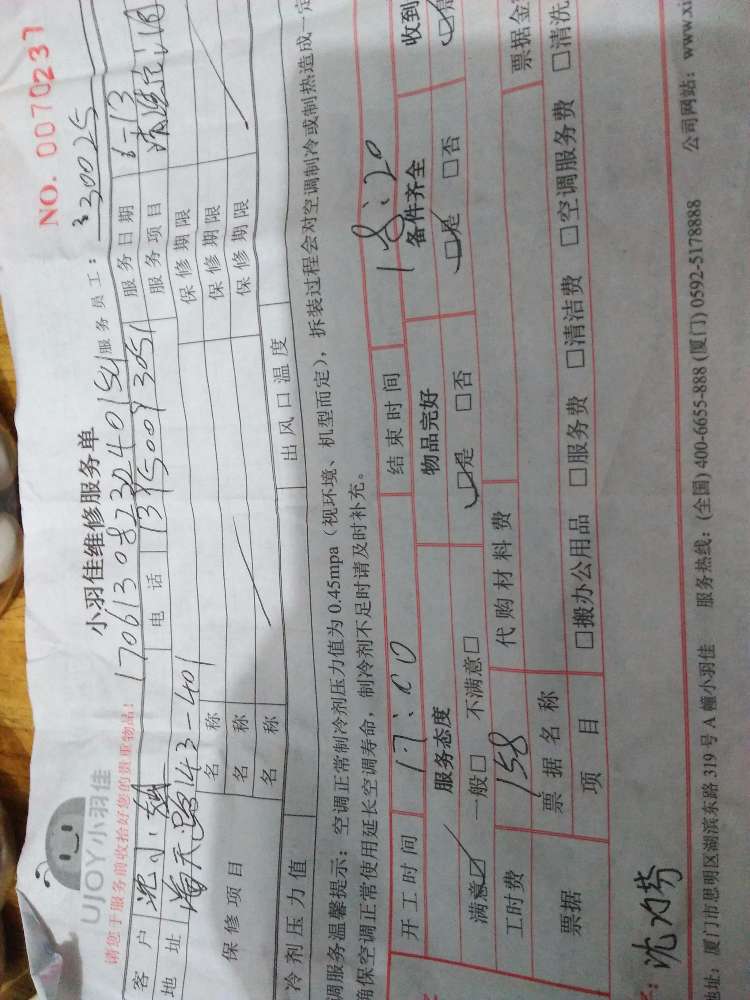 NO. 0070237
UJOY小羽佳
小羽佳维修服务单
请您于服务前收拾好您的贵重物品!
17061308232401541
服务员工: 30025
客户
电话 13950093051
服务日期 6-13
地址 海天路143-401
服务项目
保修项目
名称
保修期限
名称
保修期限
名称
保修期限
冷剂压力值
出风口温度
调服务温馨提示: 空调正常制冷剂压力值为0.45mpa(视环境、机型而定), 拆装过程会对空调制冷或制热造成一定
确保空调正常使用延长空调寿命, 制冷剂不足时请及时补充。
开工时间 17:00 结束时间 18:20
服务态度 物品完好 备件齐全 收到
满意☑ 一般□ 不满意□ ☑是 □否 ☑是 □否
工时费 158 代购材料费 票据金
票据 票据名称
项目 □搬办公用品 □服务费 □清洁费 □空调服务费 □清洗
地址: 厦门市思明区湖滨东路319号A幢小羽佳 服务热线: (全国)400-6655-888 (厦门)0592-5178888 公司网站: www.xi